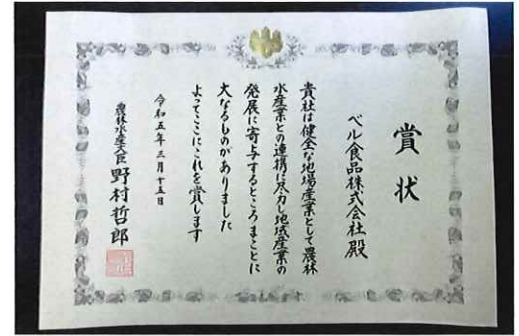 賞状
ベル食品株式会社殿
貴社は健全な地場産業として農林
水産業との連携に尽力し地域産業の
発展に寄与するところまことに
大なるものがありました
よってここにこれを賞します
令和五年三月十五日
農林水産大臣 野村哲郎